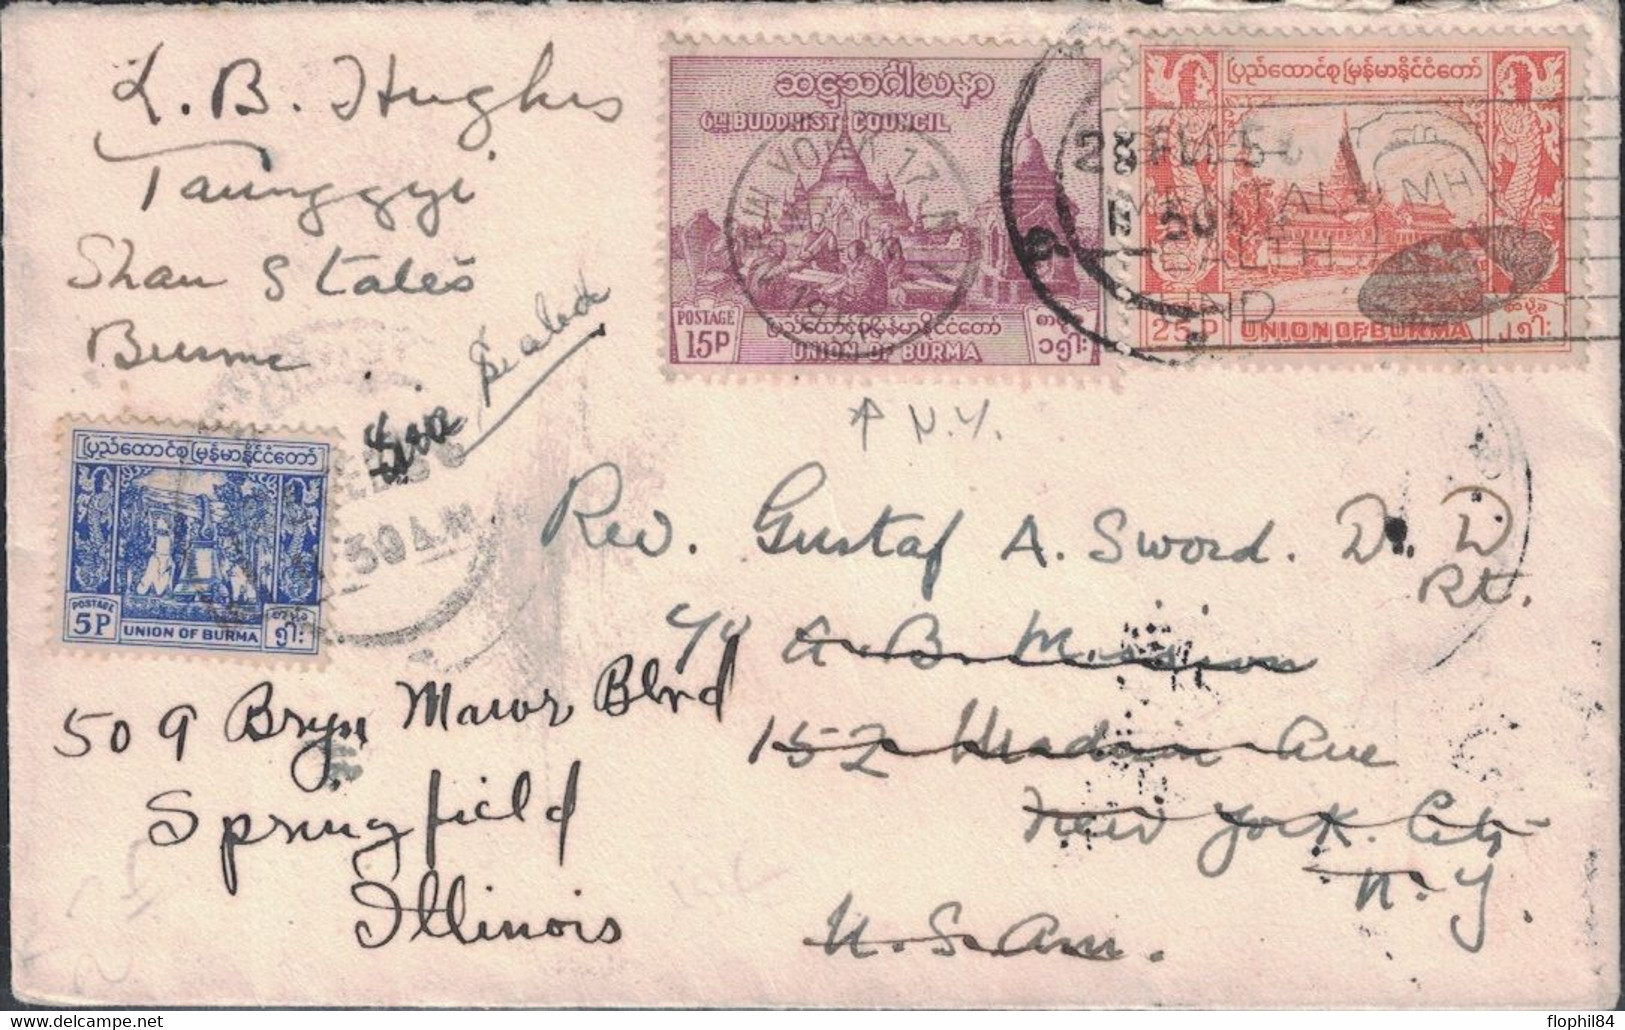 L. B. Hughes
Taunggyi
Shan States
Burma
Sea Sealed
ဆဋ္ဌသင်္ဂါယနာ
6TH BUDDHIST COUNCIL
POSTAGE
15P
ပြည်ထောင်စုမြန်မာနိုင်ငံတော်
UNION OF BURMA
၁၅ါး
NEW YORK
ပြည်ထောင်စုမြန်မာနိုင်ငံတော်
25P
UNION OF BURMA
၂၅ါး
MENTAL
MH
N.Y.
ပြည်ထောင်စုမြန်မာနိုင်ငံတော်
POSTAGE
5P
UNION OF BURMA
၅ါး
30 A.M
Rev. Gustaf A. Sword. D. D
Rt.
c/o A. B. Mission
152 Madison Ave
New York. City
N. Y.
U. S. Am.
509 Bryn Mawr Blvd
Springfield
Illinois
www.delcampe.net
flophil84